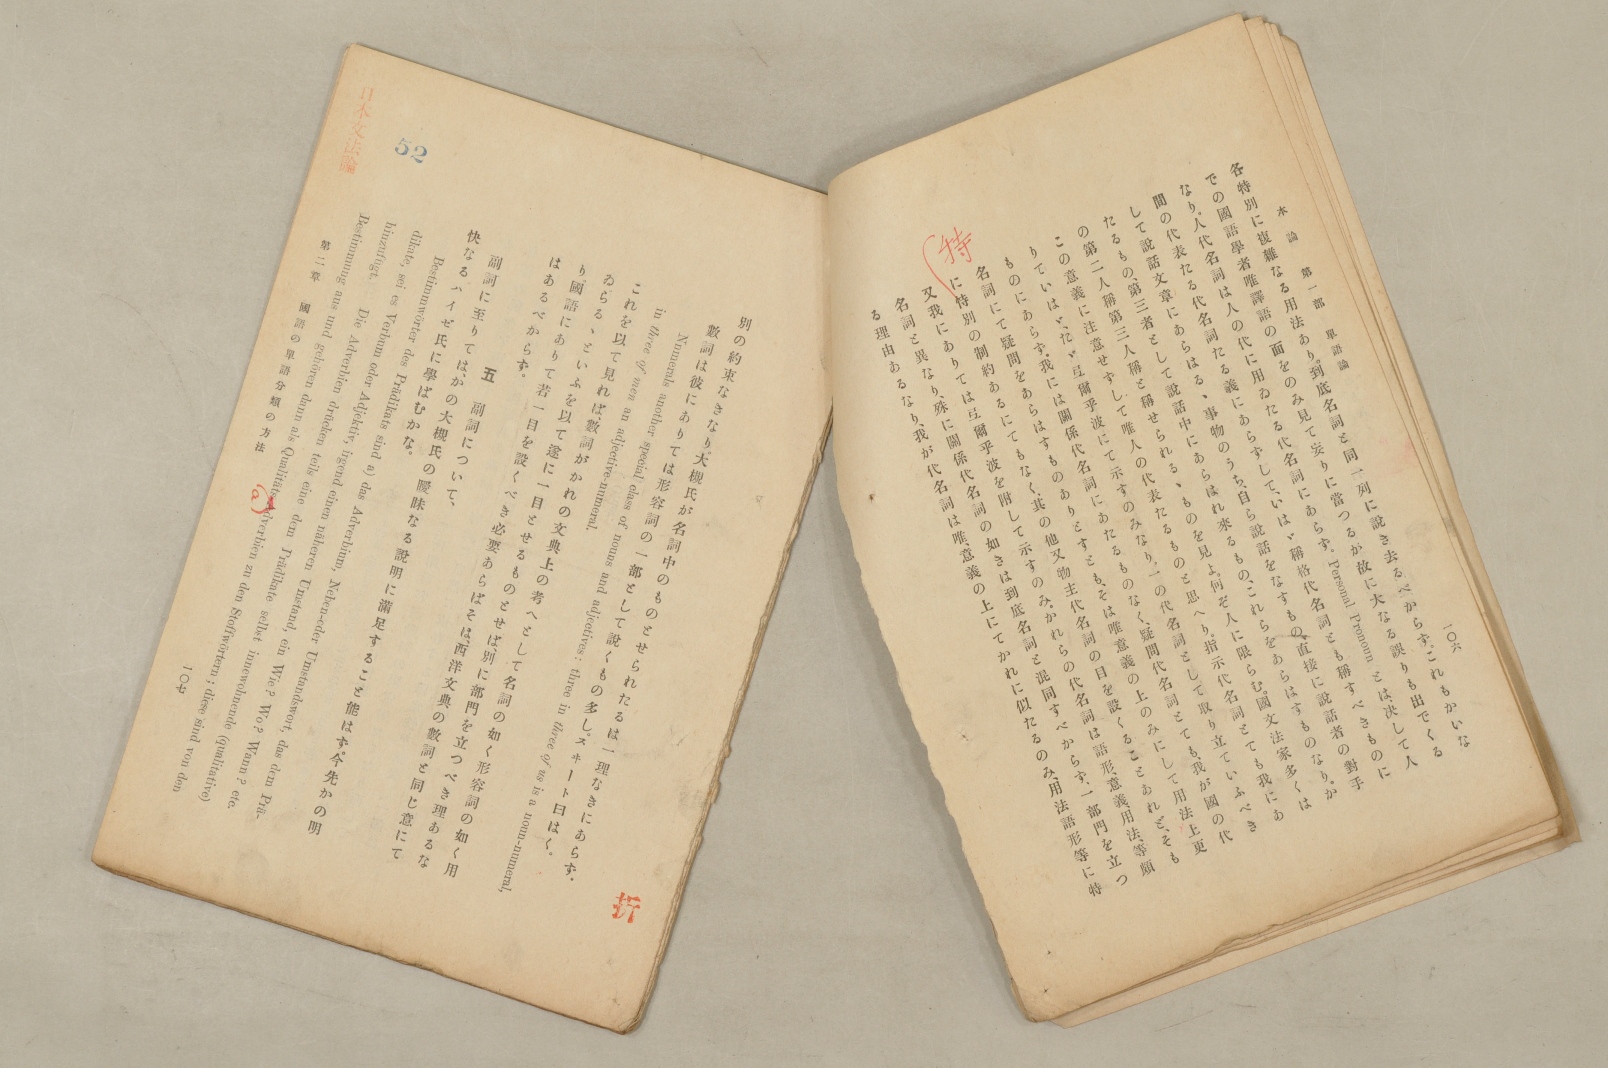 本論　第一部　單語論　一〇六
各特別に複雜なる用法あり。到底名詞と同一列に說き去るべからず。これもかいな
での國語學者唯譯語の面をのみ見て妄りに當つるが故に大なる誤りも出でくる
なり。人代名詞は人の代に用ゐたる代名詞にあらず。Personal Pronoun とは、決して人
間の代表たる代名詞たる義にあらずして、いはゞ稱格代名詞とも稱すべきものに
して說話文章にあらはるゝ事物のうち、自ら說話をなすもの、直接に說話者の對手
たるもの、第三者として說話中にあらはれ來るもの、これらをあらはすものなり。か
の第二人稱第三人稱と稱せられるゝものを見よ。何ぞ人に限らむ。國文法家多くは
この意義に注意せずして唯人の代表たるものと思へり。指示代名詞とても我にあ
りていはゞ、たゞ弖爾乎波にて示すのみなり。一の代名詞として取り立ていふべき
ものにあらず。我には關係代名詞にあたるものなく、疑問代名詞とても、我が國の代
名詞にて疑問をあらはすものありとすとも、そは唯意義の上のみにして用法上更
に特別の制約あるにてもなく、其の他又物主代名詞の目を設くることあれど、そも
又我にありては弖爾乎波を附して示すのみ。かれらの代名詞は語形、意義、用法、等頗
名詞と異なり、殊に關係代名詞の如きは到底名詞と混同すべからず、一部門を立つ
る理由あるなり。我が代名詞は唯、意義の上にてかれに似たるのみ、用法語形等に特
特
別の約束なきなり。大槻氏が名詞中のものとせられたるは一理なきにあらず。
數詞は彼にありては形容詞の一部として說くもの多し。スヰート曰はく。
Numerals another special class of nouns and adjectives : three in three of us is a noun-numeral,
in three of men an adjective-numeral.
これを以て見れば、數詞がかれの文典上の考へとして名詞の如く形容詞の如く用
ゐらるゝといふを以て遂に一目とせるものとせば、別に部門を立つべき理あるな
り。國語にありて若一目を設くべき必要あらばそは、西洋文典の數詞と同じ意にて
はあるべからず。
五　副詞について、
副詞に至りてはかの大槻氏の曖昧なる說明に滿足すること能はず。今先かの明
快なるハイゼ氏に學ばむかな。
Bestimmwörter des Prädikats sind a) das Adverbium, Neben-oder Umstandswort, das dem Prä-
dikate, sei es Verbum oder Adjektiv, irgend einen näheren Umstand, ein Wie? Wo? Wann? etc.
hinzufügt. Die Adverbien drücken teils eine dem Prädikate selbst innewohnende (qualitative)
Bestimmung aus und gehören dann als Qualitätsadverbien zu den Stoffwörtern; diese sind von den
第二章　國語の單語分類の方法　一〇七
日本文法論
52
折